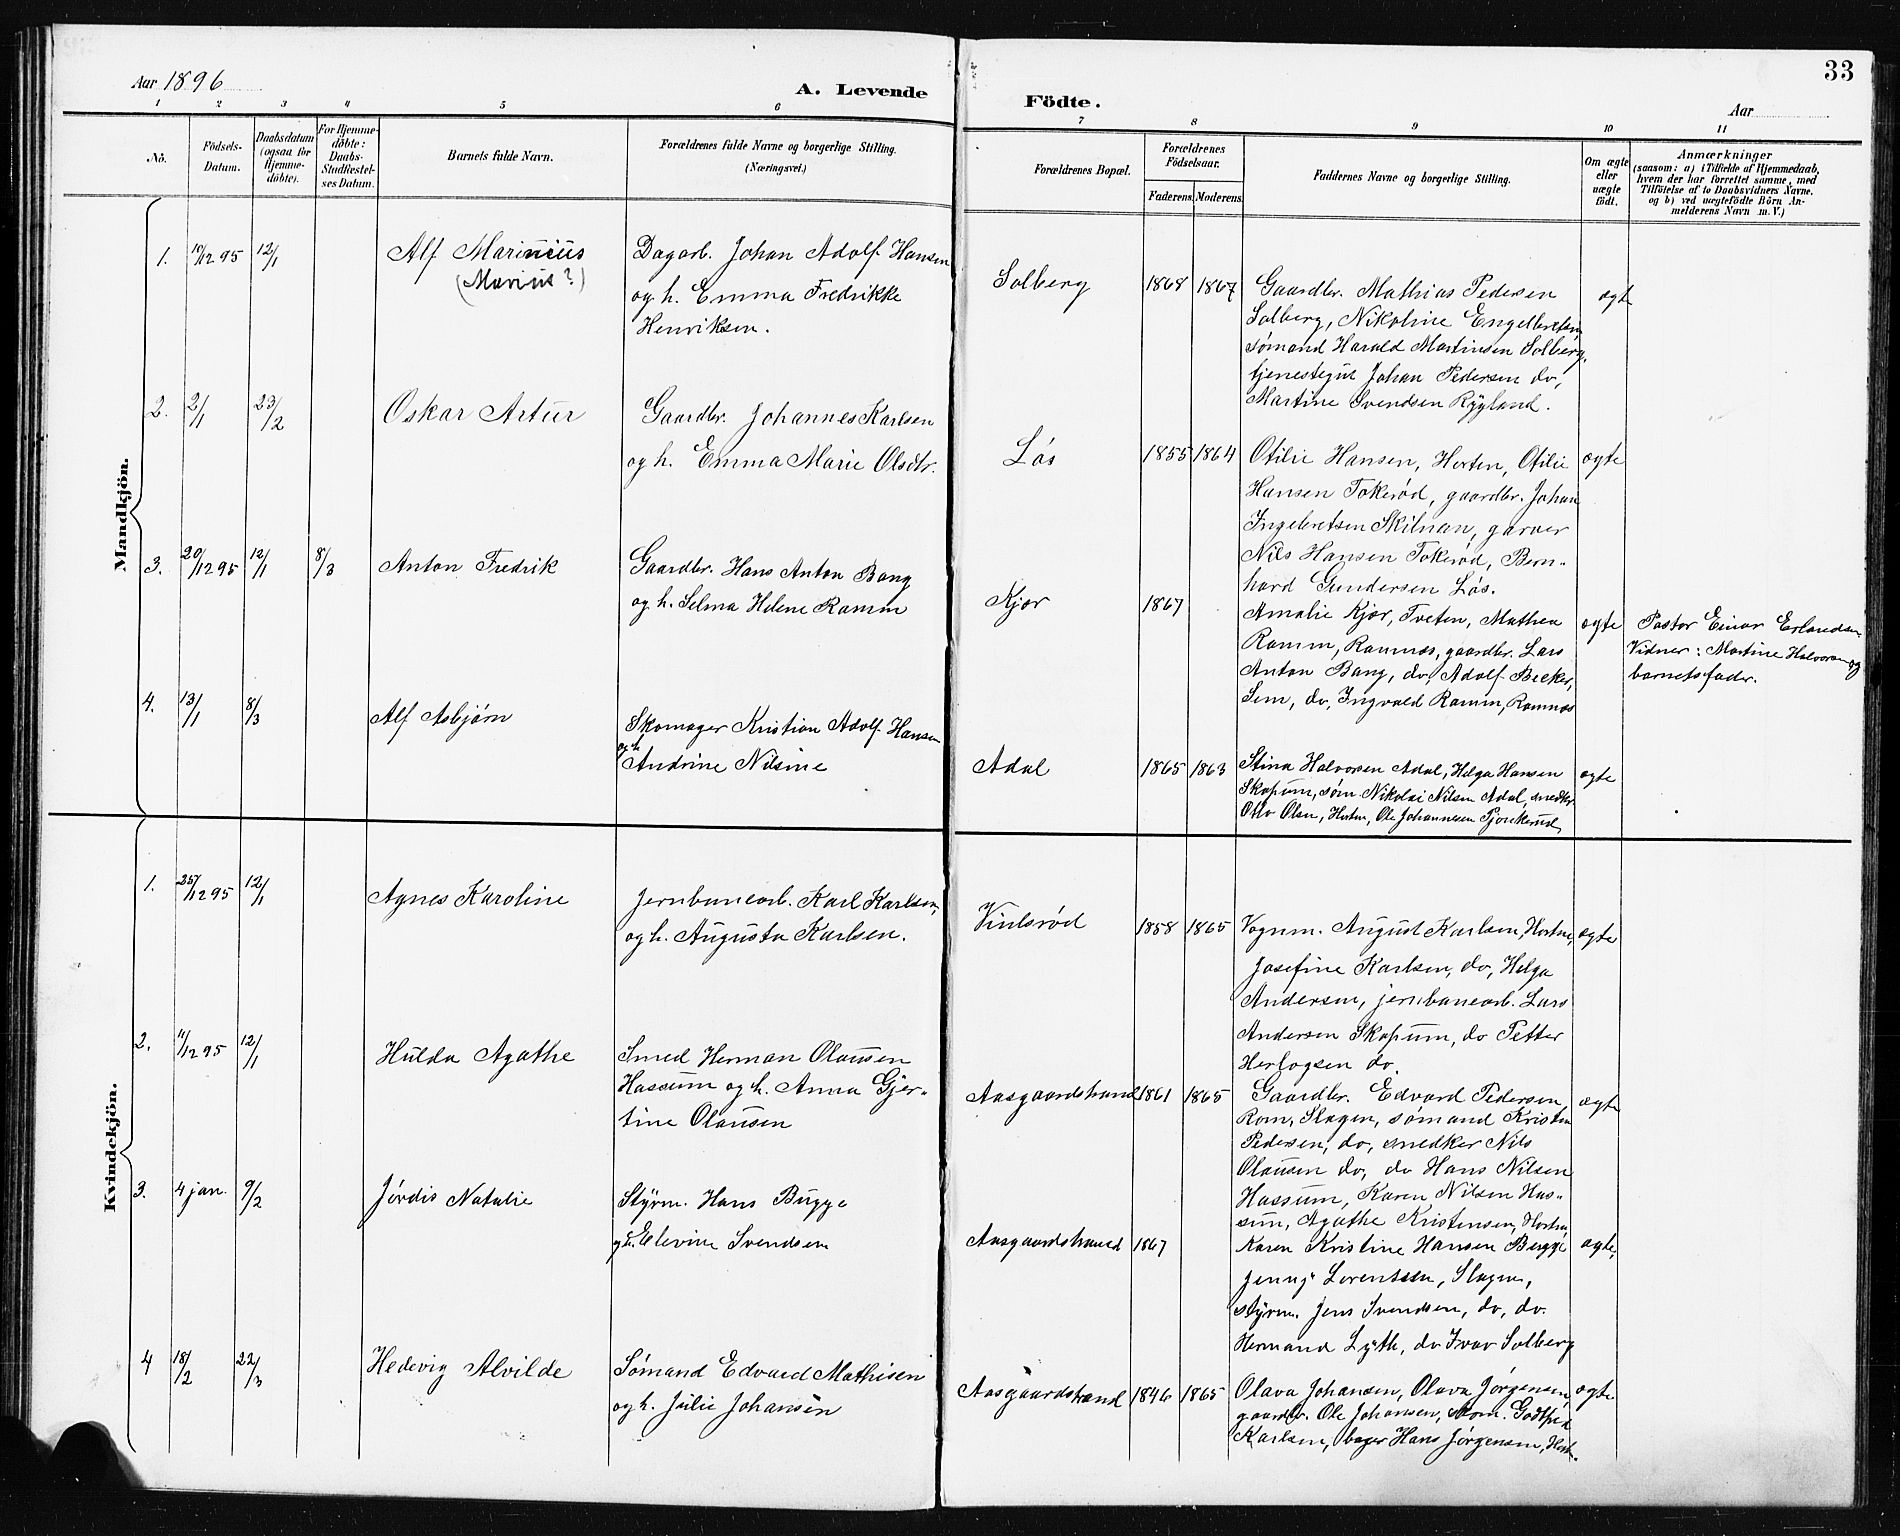 Aar 1896
A. Levende
1 2 3 4 5 6
No.
Födsels-
Datum.
Daabsdatum
(ogsaa for
Hjemme-
döbte).
For Hjemme-
döbte:
Daabs-
Stadfæstel-
ses Datum.
Barnets fulde Navn.
Forældrenes fulde Navne og borgerlige Stilling.
(Næringsvei.)
Mandkjön.
1. 10/12 95 12/1 Alf Marinius
(Marius?)
Dagarb. Johan Adolf Hansen
og h. Emma Fredrikke
Henriksen.
2. 2/1 23/2 Oskar Artur
Gaardbr. Johannes Karlsen
og h. Emma Marie Olsdtr.
3. 20/12 95 12/1 8/3 Anton Fredrik
Gaardbr. Hans Anton Bang
og h. Selma Helene Ramm
4. 13/1 8/3 Alf Asbjørn
Skomager Kristian Adolf Hansen
og h.
Andrine Nilsine
Kvindekjön.
1. 25/12 95 12/1 Agnes Karoline
Jernbanearb. Karl Karlsen,
og h. Augusta Karlsen.
2. 11/12 95 12/1 Hulda Agathe
Smed Herman Olausen
Hassum og h. Anna Gjer-
tine Olausen
3. 4 jan. 9/2 Jørdis Natalie
Styrm. Hans Bugge
og h. Elevine Svendsen
4 18/2 22/3 Hedevig Alvilde
Sømand Edvard Mathisen
og h. Julie Johansen
33
Födte.
Aar
7 8 9 10 11
Forældrenes Bopæl.
Forældrenes
Födselsaar.
Faderens. Moderens.
Faddernes Navne og borgerlige Stilling.
Om ægte
eller
uægte
födt.
Anmærkninger
(saasom: a) i Tilfælde af Hjemmedaab,
hvem der har forrettet samme, med
Tilföielse af to Daabsvidners Navne.
og b) ved uægtefödte Börn An-
melderens Navn m. V.)
Solberg 1868 1867 Gaardbr. Mathias Pedersen ægte
Solberg, Nikoline Engelbretsen,
sømand Harald Martinsen Solberg,
tjenestegut Johan Pedersen do,
Martine Svendsen Rygland.
Løs 1855 1864 Otilie Hansen, Horten, Otilie ægte
Hansen Tokerød, gaardbr. Johan
Ingebretsen Skilnan, garver
Nils Hansen Tokerød, Bern-
hard Gundersen Løs.
Kjær 1867 Amalie Kjær, Tveten, Mathea ægte
Ramm, Ramnæs, gaardbr. Lars
Anton Bang, do, Adolf Becker,
Sem, do, Ingvald Ramm, Ramnæs
Pastor Einar Erlandsen
Vidner: Martine Halvorsen og
barnets fader.
Adal 1865 1863 Stina Halvorsen Adal, Helga Hansen ægte
Skopum, søm. Nikolai Nilsen Adal, snedker
Otto Olsen, Horten, Ole Johannesen
Vinlsrød 1858 1865 Vognm. August Karlsen, Horten, ægte
Josefine Karlsen, do, Helga
Andersen, jernbanearb. Lars
Andersen Skopum, do Petter
Hertogsen do.
Aasgaardstrand 1861 1865 Gaardbr. Edvard Pedersen ægte
Rom, Slagen, sømand Kristen
Pedersen, do, snedker Nils
Olausen do, do Hans Nilsen
Hassum, Karen Nilsen Has-
sum, Agathe Kristensen, Horten
Aasgaardstrand 1867 Karen Kristine Hansen Bugge ægte,
Jenny Lorentsen, Slagen,
styrm. Jens Svendsen, do, do.
Hermand Lyth, do Ivar Solberg
Aasgaardstrand 1846 1865 Olava Johansen, Olava Jørgensen, ægte
gaardbr. Ole Johansen, søm. Godtfred
Karlsen, bager Hans Jørgensen, Horten.